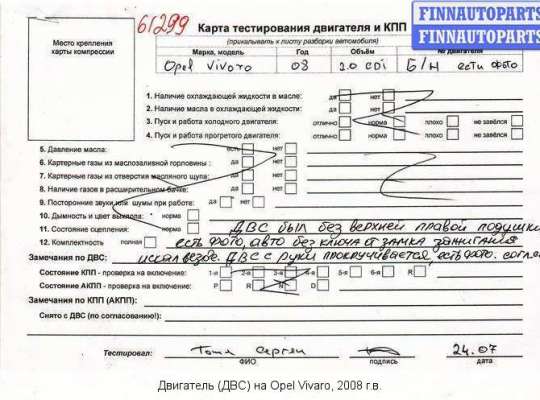 FINNAUTOPARTS
FINNAUTOPARTS
61299
Карта тестирования двигателя и КПП
(прикалывать к листу разборки автомобиля)
Место крепления
карты компрессии
Марка, модель Год Объём № двигателя
Opel Vivaro 08 2.0 cdi Б/Н есть фото
1. Наличие охлаждающей жидкости в масле: да нет
2. Наличие масла в охлаждающей жидкости: да нет
3. Пуск и работа холодного двигателя: отлично норма плохо не завёлся
4. Пуск и работа прогретого двигателя: отлично норма плохо не завёлся
5. Давление масла: есть нет
6. Картерные газы из маслозаливной горловины: да нет
7. Картерные газы из отверстия масляного щупа: да нет
8. Наличие газов в расширительном бачке: да нет
9. Посторонние звуки или шумы при работе: да нет
10. Дымность и цвет выхлопа: норма
11. Состояние сцепления: норма ДВС был без верхней правой подушки
12. Комплектность полная есть фото, авто без ключа от замка зажигания
Замечания по ДВС: искал везде. ДВС с руки прокручивается, есть фото.
Состояние КПП - проверка на включение: 1-я 2-я 3-я 4-я 5-я 6-я R
Состояние АКПП - проверка на включение: P R N D
Замечания по КПП (АКПП):
Снято с ДВС (по согласованию!):
Тестировал: Сергей 24.07
ФИО подпись дата
Двигатель (ДВС) на Opel Vivaro, 2008 г.в.